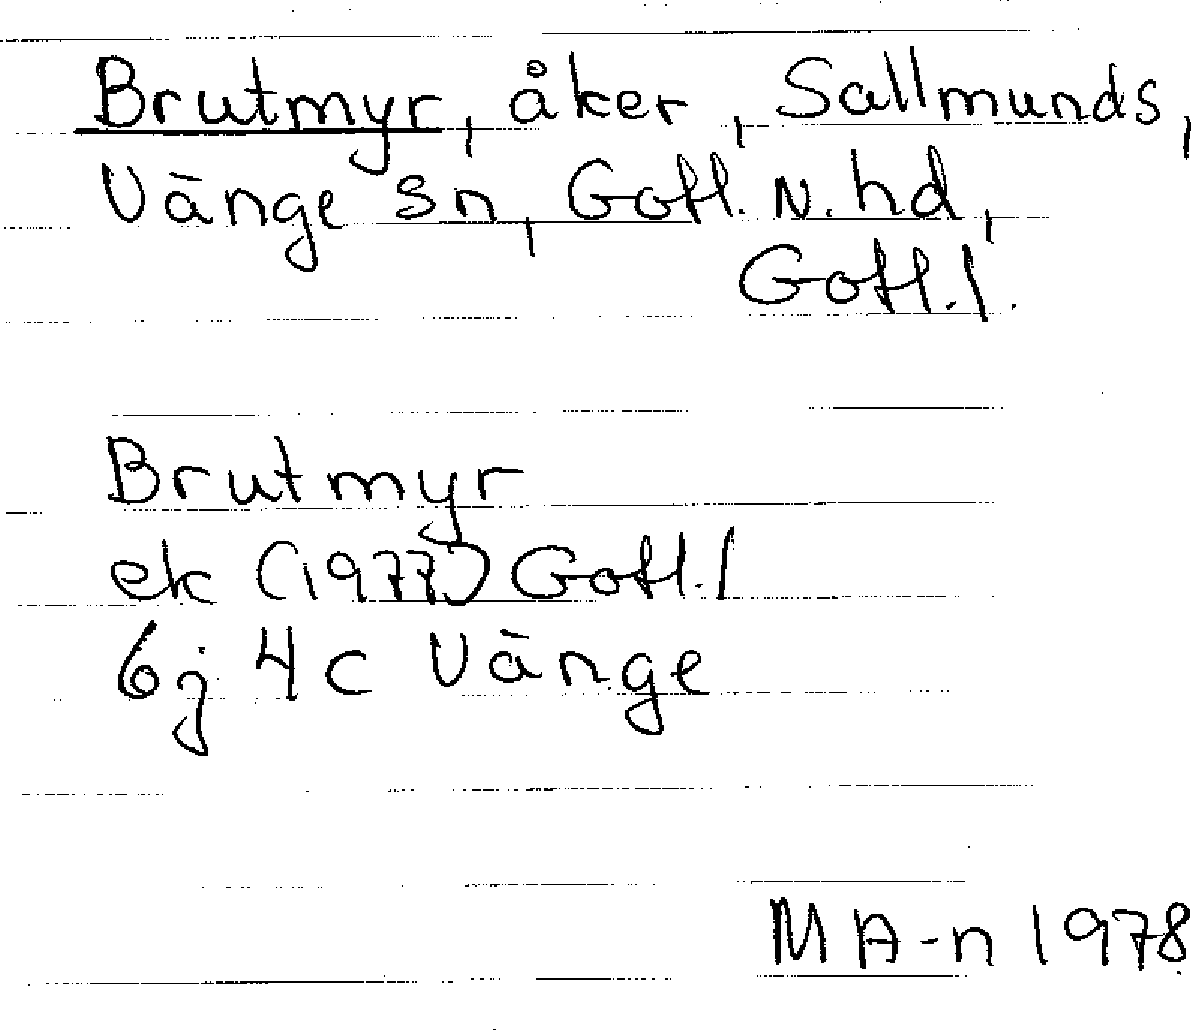 Brutmyr, åker, Sallmunds,
Vänge sn, Gotl. N. hd,
Gotl. l.
Brutmyr
ek (1977) Gotl. l
6j 4c Vänge
M A-n 1978